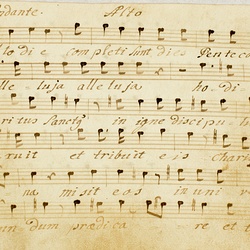 ndante. Alto
lo di e completi sunt dies Penteco
alle luja alleluja ho di
ritus Sanctus in igne discipu
ruit et tribuit eis Charis
na misit eos in uni
un dum prædica re et t